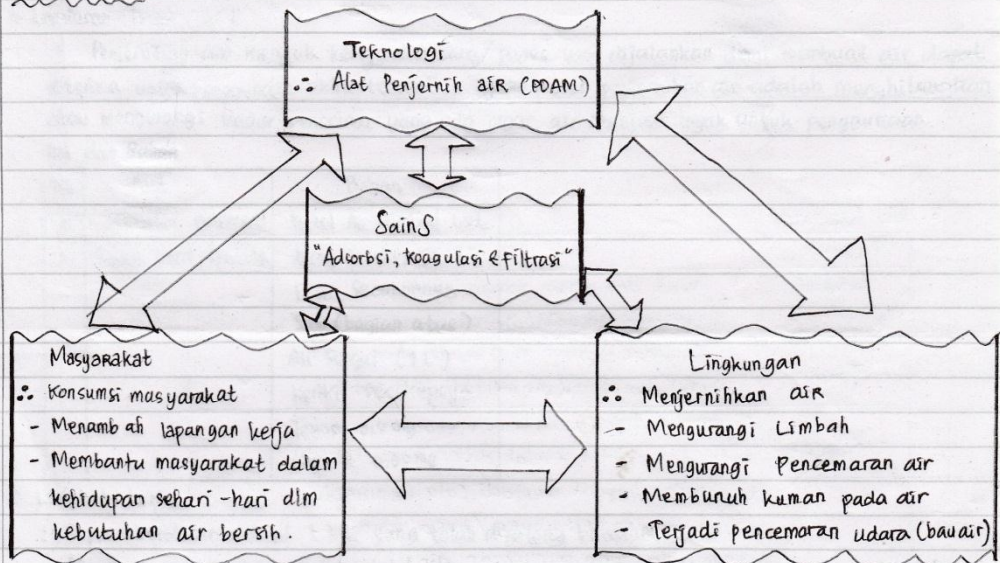 Teknologi
∴ Alat Penjernih aiR (PDAM)
Sains
"Adsorbsi, koagulasi & filtrasi"
Masyarakat
∴ Konsumsi masyarakat
- Menambah lapangan kerja
- Membantu masyarakat dalam
kehidupan sehari-hari dlm
kebutuhan air bersih.
Lingkungan
∴ Menjernihkan aiR
- Mengurangi Limbah
- Mengurangi Pencemaran air
- Membunuh kuman pada air
- Terjadi pencemaran udara (bau air)